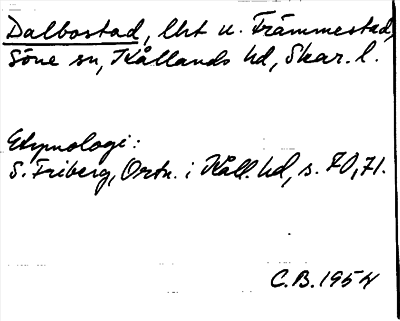 Dalbostad, lht u. Främmestad,
Söne sn, Kållands hd, Skar. l.
Etymologi:
S. Friberg, Ortn. i Kåll. hd, s. 70, 71.
C.B. 1954